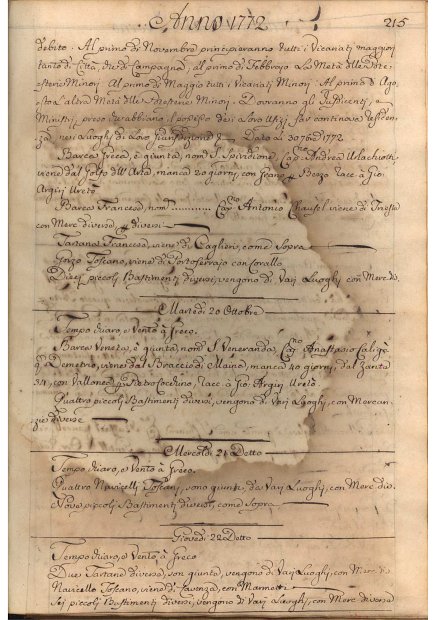 Anno 1772
215
debito: Al primo di Novembre principieranno tutti i Vicariati maggiori
tanto di Città, che di Campagna; al primo di Febbrajo La Metà delle Pote-
sterie Minori: Al primo di Maggio tutti i Vicariati Minori: Al primo d'Ago-
sto l'altra Metà delle Potesterie Minori. Dovranno gli Jusdicenti, e
Ministri, preso che abbiano il possesso dei Loro Ufizj far continova residen-
za nei Luoghi di Loro Giurisdizione Dato li 30 7bre 1772
Barca Greca, è giunta, nom. S. Spiridione, Cap.no Andrea
viene dal Golfo dell'Arta, manca 20 giorni, con Grano Race a Gio:
Argirj Uretò
Barca Francese, nom. Cap.no Antonio viene di Trieste
con Merc diverse diversi
Tartana Francese, viene di Caglieri, come Sopra
Gozzo Toscano, viene di Portoferrajo con Cavallo
Dieci piccoli Bastimenti diversi, vengono di Varj Luoghi con Merc di.
Martedì 20 Ottobre
Tempo chiaro, e Vento à Greco.
Barca Veneta, è giunta, nom. S. Veneranda, Cap.no Anastasio
q. Demetrio, viene dal Braccio di Maina, manca 40 giorni, dal Zante
31, con Vallonea, Race. a Gio: Argirj Uretò
Quattro piccoli Bastimenti diversi, vengono di Varj Luoghi, con Mercan-
zie diverse
Mercoldì 21 Detto
Tempo chiaro, e Vento à Greco.
Quattro Navicelli Toscani, sono giunti, da Varj Luoghi, con Merc. div.
Nove piccoli Bastimenti diversi, come Sopra
Giovedì 22 Detto
Tempo chiaro, e Vento, à Greco
Due Tartane diverse, son giunte, vengono di Varj Luoghi, con Merc. di.
Navicello Toscano, viene di Lavenza, con Marmo
Sei piccoli Bastimenti diversi, vengono di Varj Luoghi, con Merc. diverse